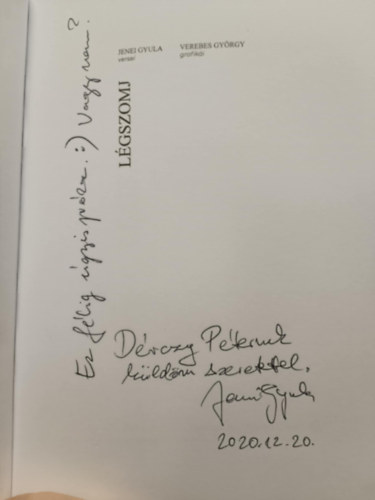 JENEI GYULA
versei
VEREBES GYÖRGY
grafikái
LÉGSZOMJ
Ez félig úgyis próza. :) Vagy nem?
Dérczy Péternek
küldöm szeretettel,
Jenei Gyula
2020.12.20.